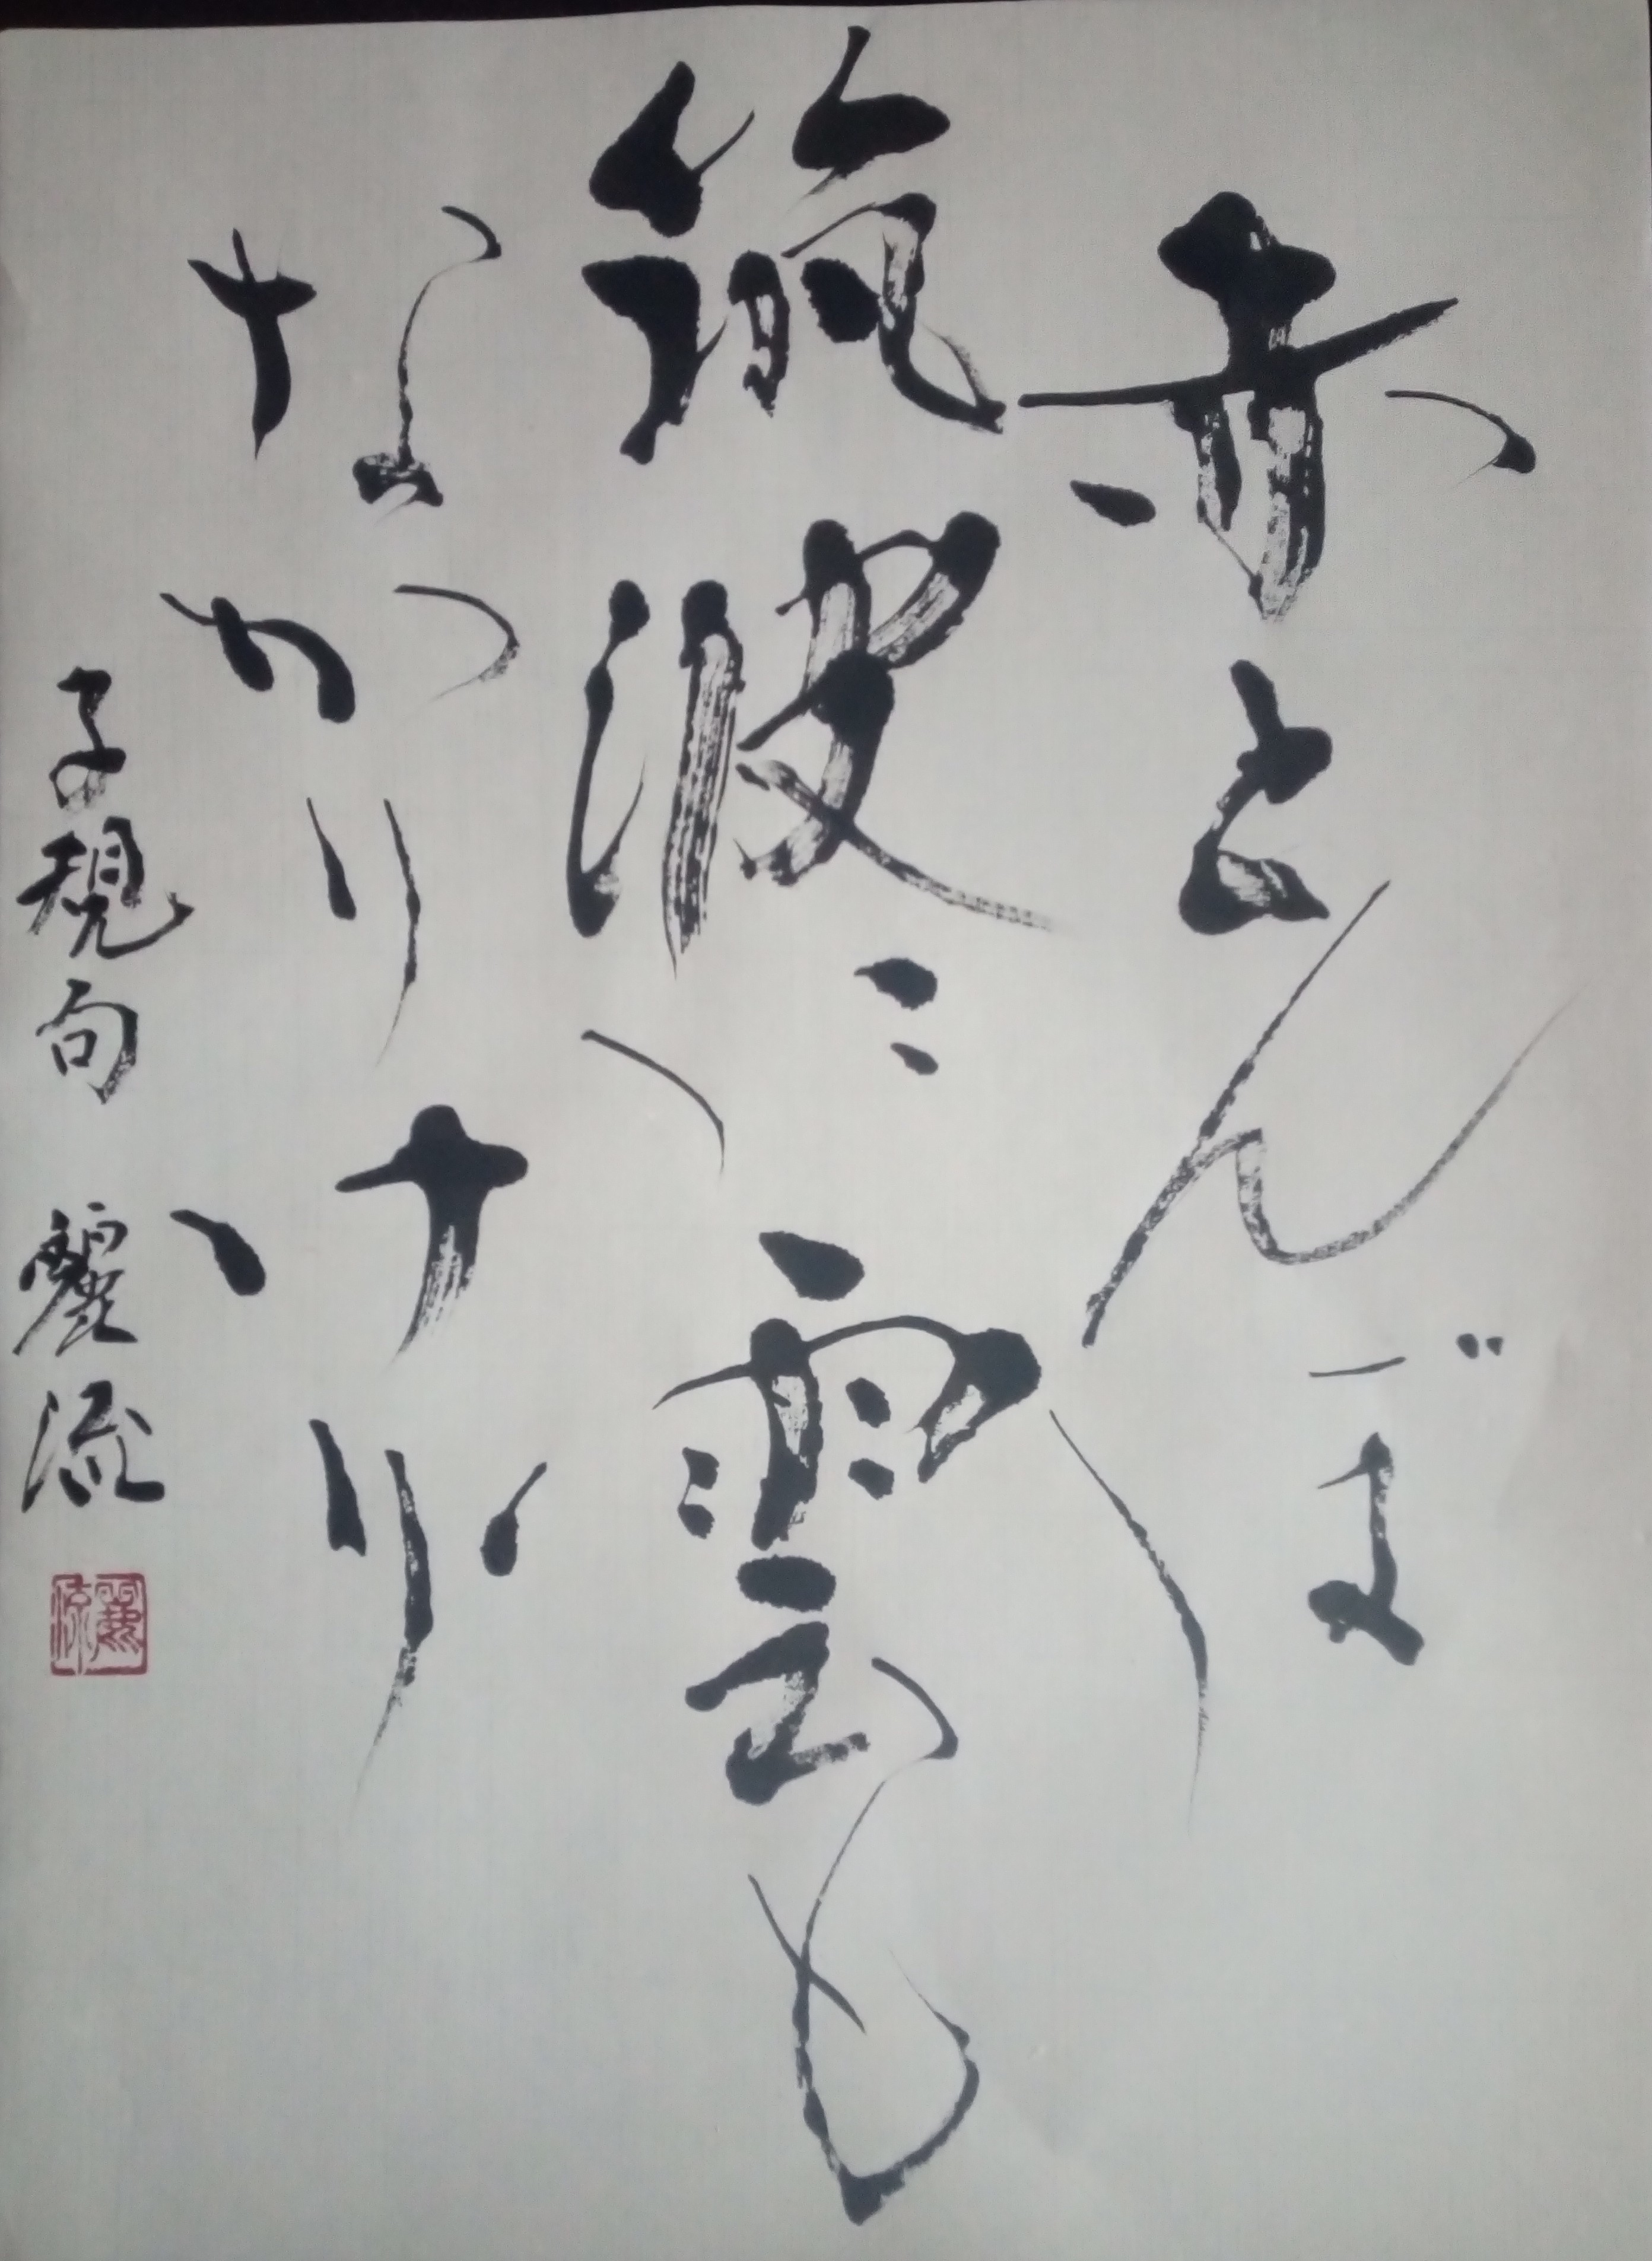 赤とんぼ
筑波に雲も
なかりけり
子規句 麗流
麗流